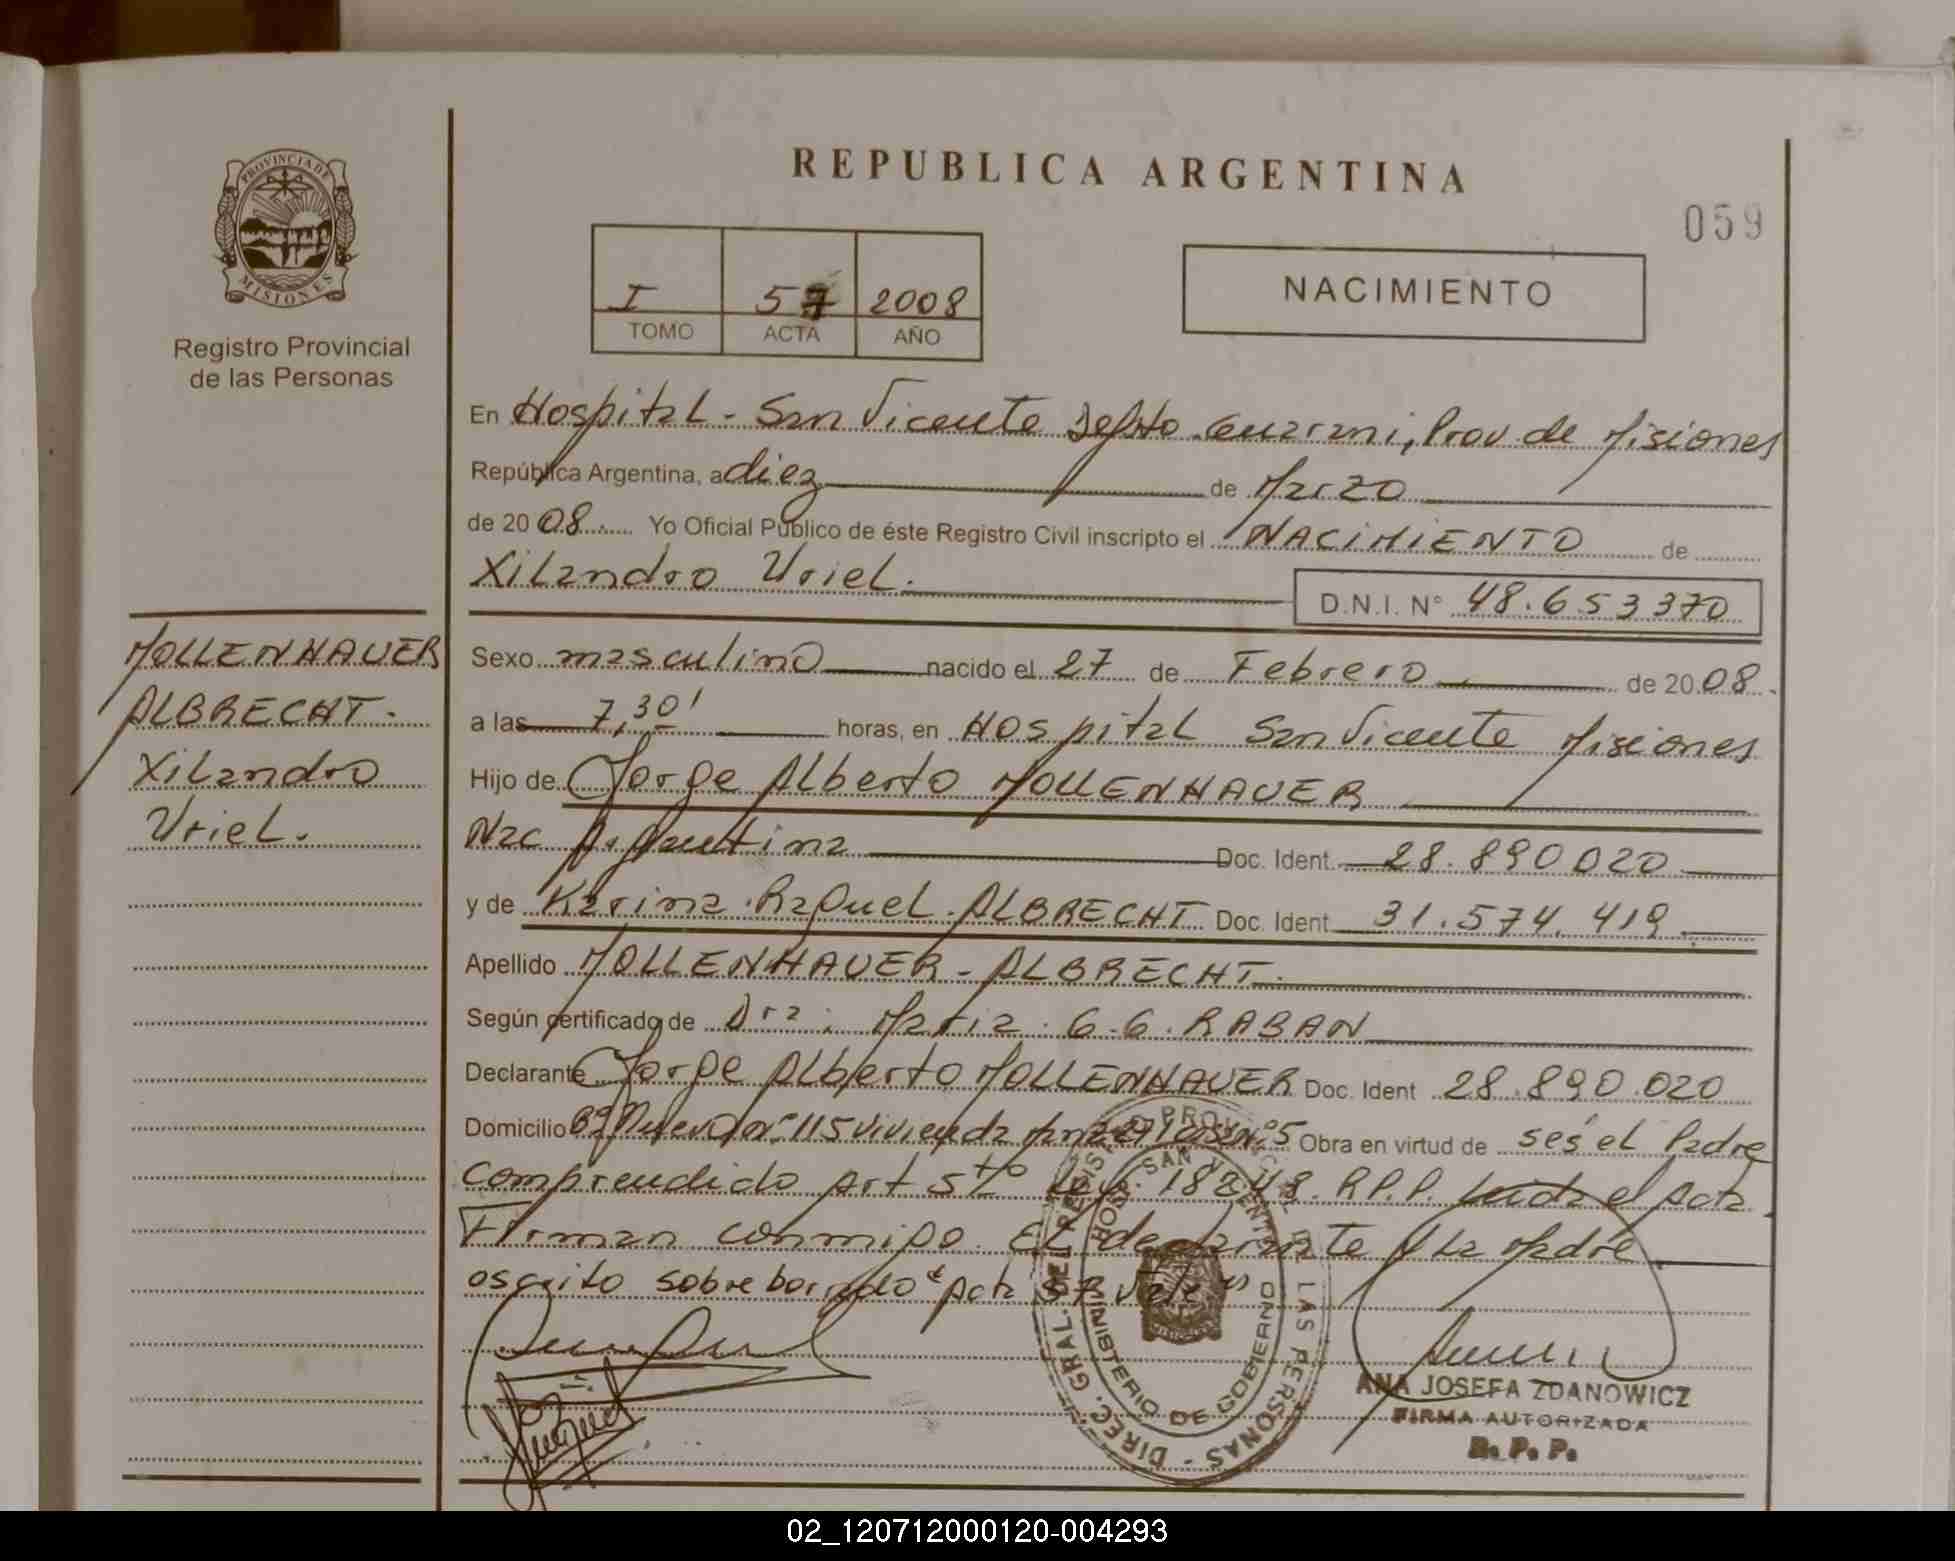 REPUBLICA ARGENTINA
059
PROVINCIA DE MISIONES
Registro Provincial
de las Personas
I 57 2008
TOMO ACTA AÑO
NACIMIENTO
En Hospital - San Vicente Depto. Guarani, Prov. de Misiones
República Argentina, a diez de Marzo
de 2008. Yo Oficial Público de éste Registro Civil inscripto el NACIMIENTO de
Xilandro Uriel.
D.N.I. N° 48.653370
MOLLENHAUER
ALBRECHT.
Xilandro
Uriel.
Sexo masculino nacido el 27 de Febrero de 2008.
a las 7,30' horas, en Hospital San Vicente Misiones
Hijo de Jorge Alberto MOLLENHAUER
Nac Argentina Doc. Ident. 28.890020
y de Karina Raquel ALBRECHT Doc. Ident 31.574.419
Apellido MOLLENHAUER - ALBRECHT.
Según certificado de Dra: Maria G.G. RABAN
Declarante Jorge Alberto MOLLENHAUER Doc. Ident 28.890.020
Domicilio B° Nuevo n° 115 vivienda n° 5 Obra en virtud de ses el Padre
comprendido Art 5to Ley 18248. R.P.P. Leida el Acta
Firman conmigo El declarante y la Madre
escrito sobre borrado "Acta 57 Vale"
DIREC. GRAL. DEL REGISTRO PROVINCIAL DE LAS PERSONAS
HOSP. SAN VICENTE
MINISTERIO DE GOBIERNO
ANA JOSEFA ZDANOWICZ
FIRMA AUTORIZADA
R. P. P.
02_120712000120-004293